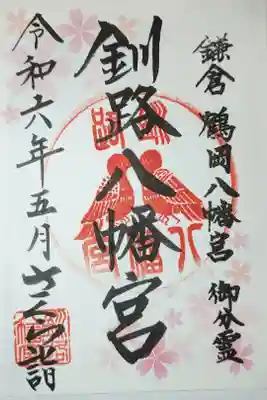 鎌倉 鶴岡八幡宮 御分霊
釧路八幡宮
令和六年五月 さくら詣